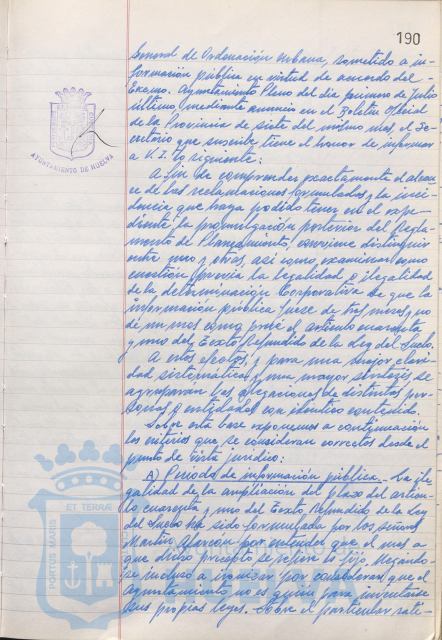 190
General de Ordenación Urbana, sometido a in-
formación pública en virtud de acuerdo del
Excmo. Ayuntamiento Pleno del día primero de Julio
último, mediante anuncio en el Boletín Oficial
de la Provincia de siete del mismo mes, el Se-
cretario que suscribe tiene el honor de informar
a V.I. lo siguiente:
A fin de comprender exactamente el alcan-
ce de las reclamaciones formuladas y la inci-
dencia que haya podido tener en el expe-
diente la promulgación posterior del Regla-
mento de Planeamiento, conviene distinguir
entre unos y otras, así como examinar como
cuestión previa la legalidad o ilegalidad
de la determinación Corporativa de que la
información pública fuese de tres meses y no
de un mes como prevé el artículo cuarenta
y uno del Texto Refundido de la Ley del Suelo.
A estos efectos, y para una mejor clari-
dad sistemática y una mayor síntesis se
agruparán las alegaciones de distintas per-
sonas o entidades con idéntico contenido.
Sobre esta base exponemos a continuación
los criterios que se consideran correctos desde el
punto de vista jurídico:
A) Período de información pública.- La ile-
galidad de la ampliación del plazo del artícu-
lo cuarenta y uno del Texto Refundido de la Ley
del Suelo ha sido formulada por los señores
Martín Alarcón por entender que el mes a
que dicho precepto se refiere es fijo, llegando-
se incluso a ironizar por considerar que el
Ayuntamiento no es quien para inventarse
sus propias leyes. Sobre el particular rati-
AYUNTAMIENTO DE HUELVA
PORTUS MARIS
ET TERRAE